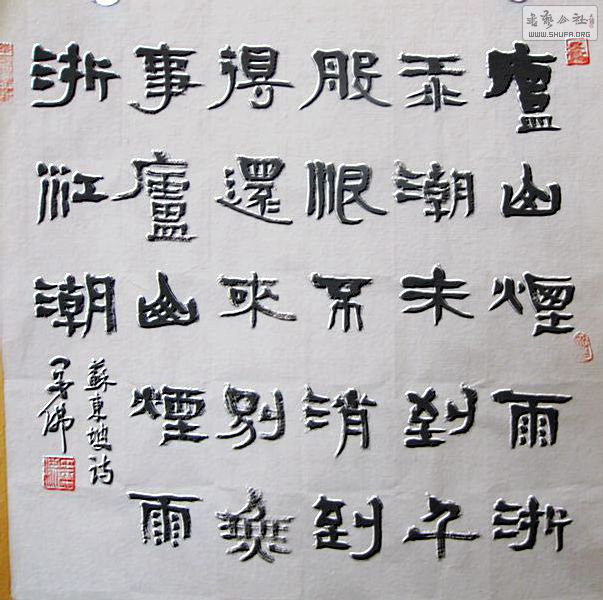 書藝公社
WWW.SHUFA.ORG
廬山煙雨浙
江潮未到千
般恨不消到
得還來別無
事廬山煙雨
浙江潮
蘇東坡詩
佛